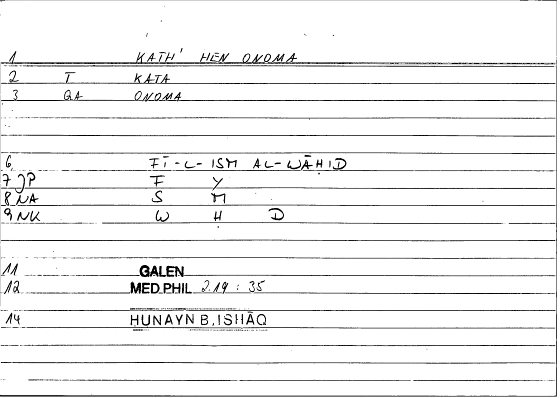 1 KATH' HEN ONOMA
2 T KATA
3 GA ONOMA
6 FĪ-L-ISM AL-WĀHID
7 JP F Y
8 NA S M
9 NK W H D
11 GALEN
12 MED.PHIL 2.19 : 35
14 HUNAYN B,ISHĀQ